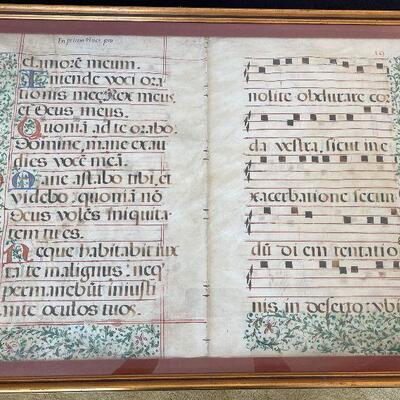 clamorē meum.
Intende voci ora
tionis meę Rex meus,
et Deus meus.
Quoniā ad te orabo:
Domine, mane exau
dies vocē meā.
Mane astabo tibi, et
videbo: quoniā nō
Deus volēs iniquita
tem tu es.
Neque habitabit iux
ta te malignus: neq;
permanebūt iniusti
ante oculos tuos.
nolite obdurare cor
da vestra, sicut in e
xacerbatione secun
dū diem tentatio
nis in deserto: vbi